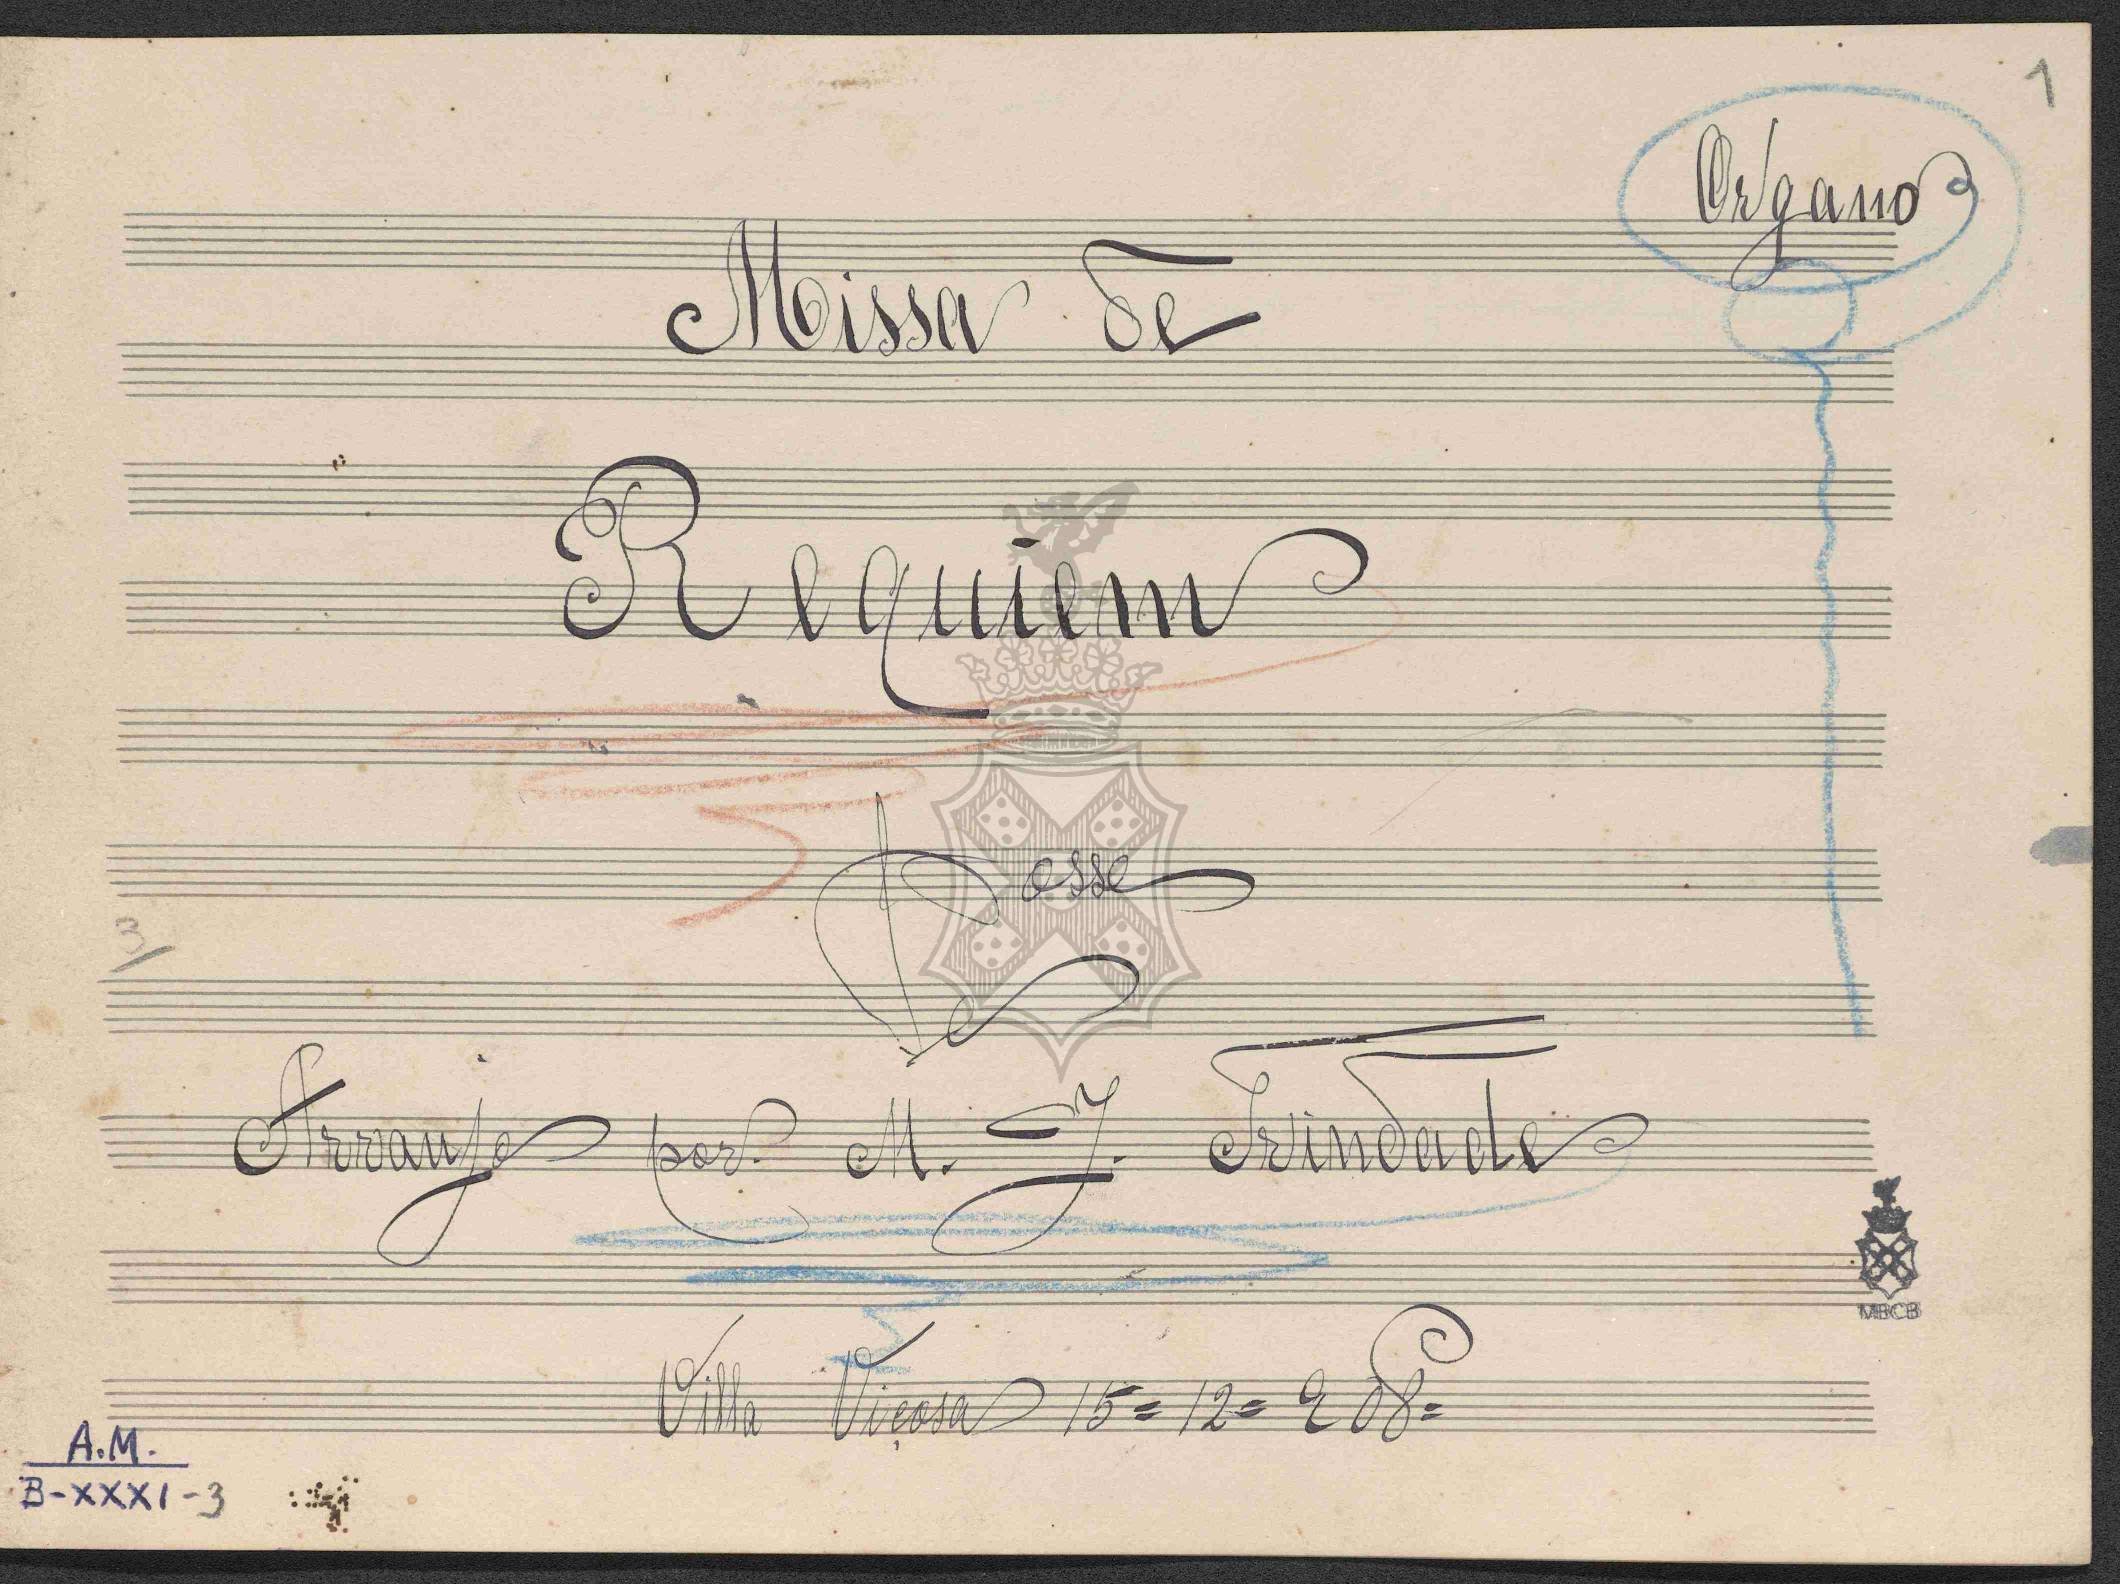 1
Organo
Missa de
Requiem
Bosse
3
Arranjo por. M. J. Trindade
Villa Viçosa 15=12=908=
MBCB
A.M.
B-XXXI-3